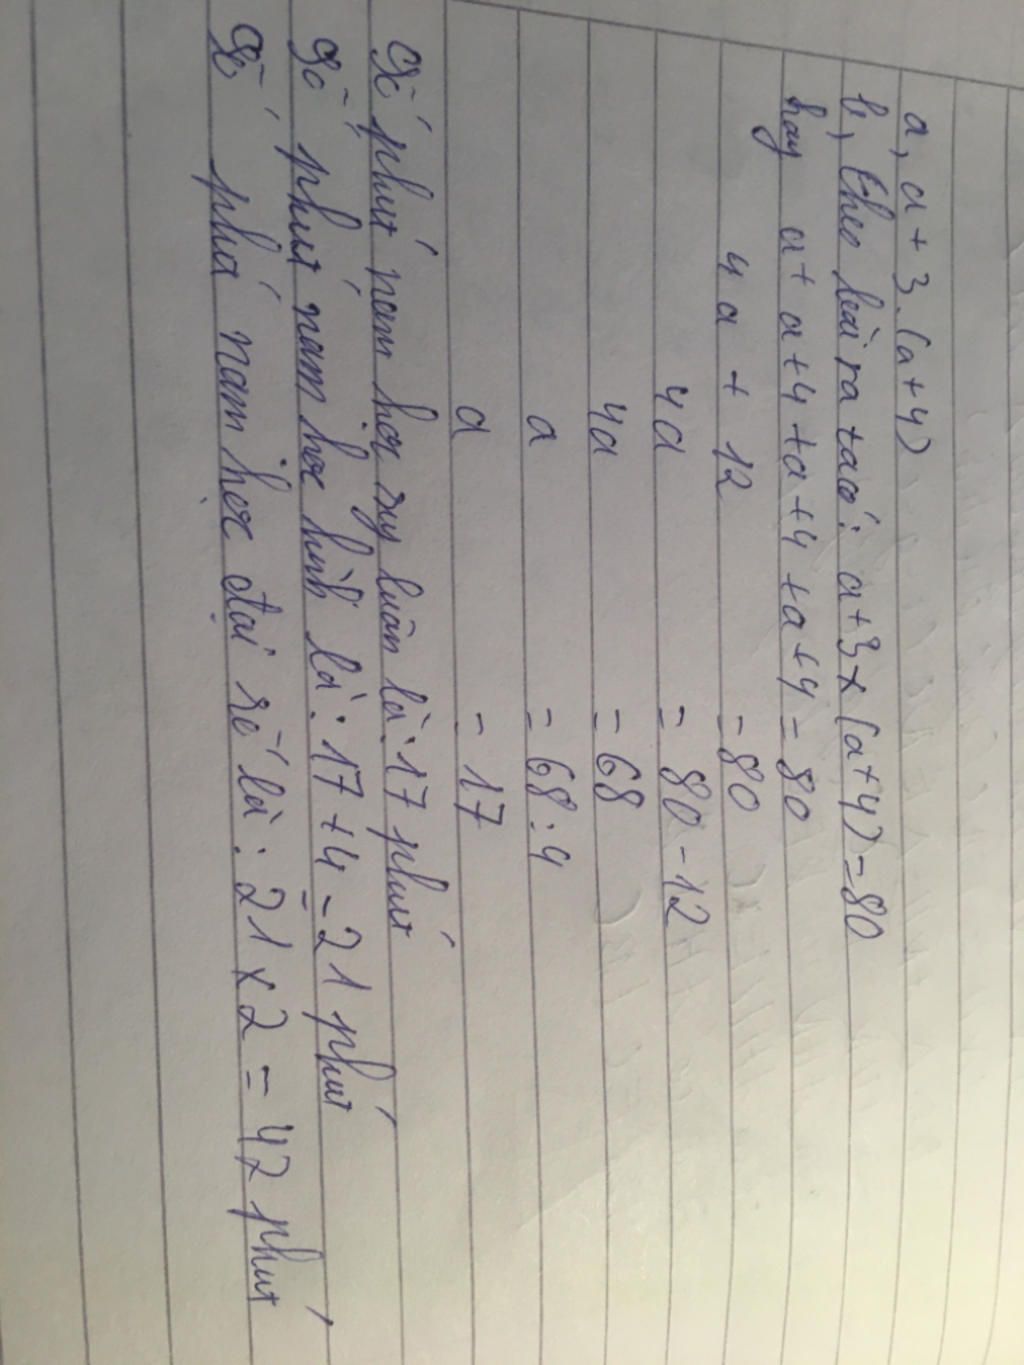 a, a + 3.(a+4)
b, theo bài ra ta có: a+3x(a+4)=80
hay a+a+4+a+4+a+4=80
4a + 12 =80
4a = 80-12
4a = 68
a = 68:4
a = 17
Số phút nam học suy luận là: 17 phút
Số phút nam học hình là: 17+4=21 phút
Số phú nam học đại số là: 21x2=42 phút